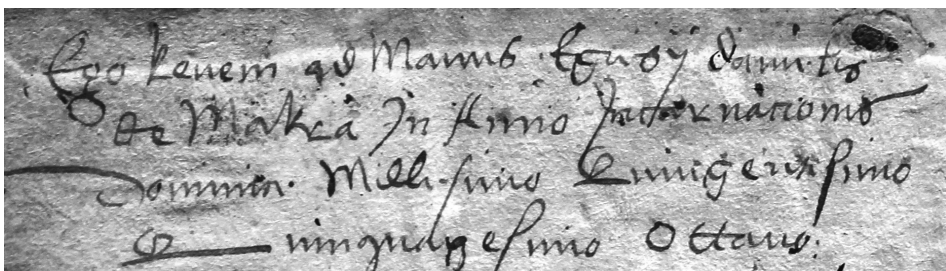 Ego Reveni ad Manus Egidij
de Makra In Anno Incarnacionis
Dominica Millesimo Quingentesimo
Quinquagesimo Ottavo.